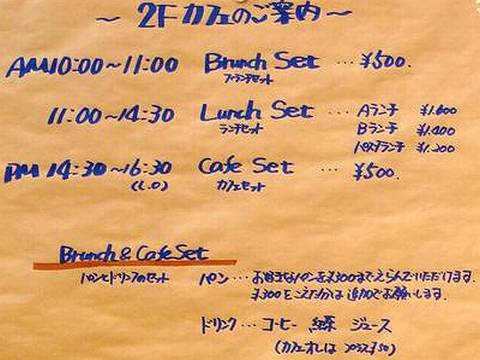 ～ 2F カフェのご案内～
AM10:00～11:00 Brunch Set … ¥500.
ブランチセット
11:00～14:30 Lunch Set … Aランチ ¥1.600
ランチセット Bランチ ¥1.400
パスタランチ ¥1.200
PM 14:30～16:30 Cafe Set … ¥500.
(L.O) カフェセット
Brunch & Cafe Set
パンとドリンクのセット パン… お好きなパンを¥300までえらんでいただけます.
¥300をこえた分は追加でお願いします.
ドリンク… コーヒー 紅茶 ジュース
(カフェオレは プラス¥50)